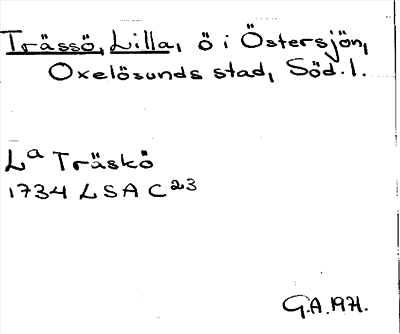 Trässö, Lilla, ö i Östersjön,
Oxelösunds stad, Söd. l.
La Träskö
1734 LSA C23
G.A. 1971.